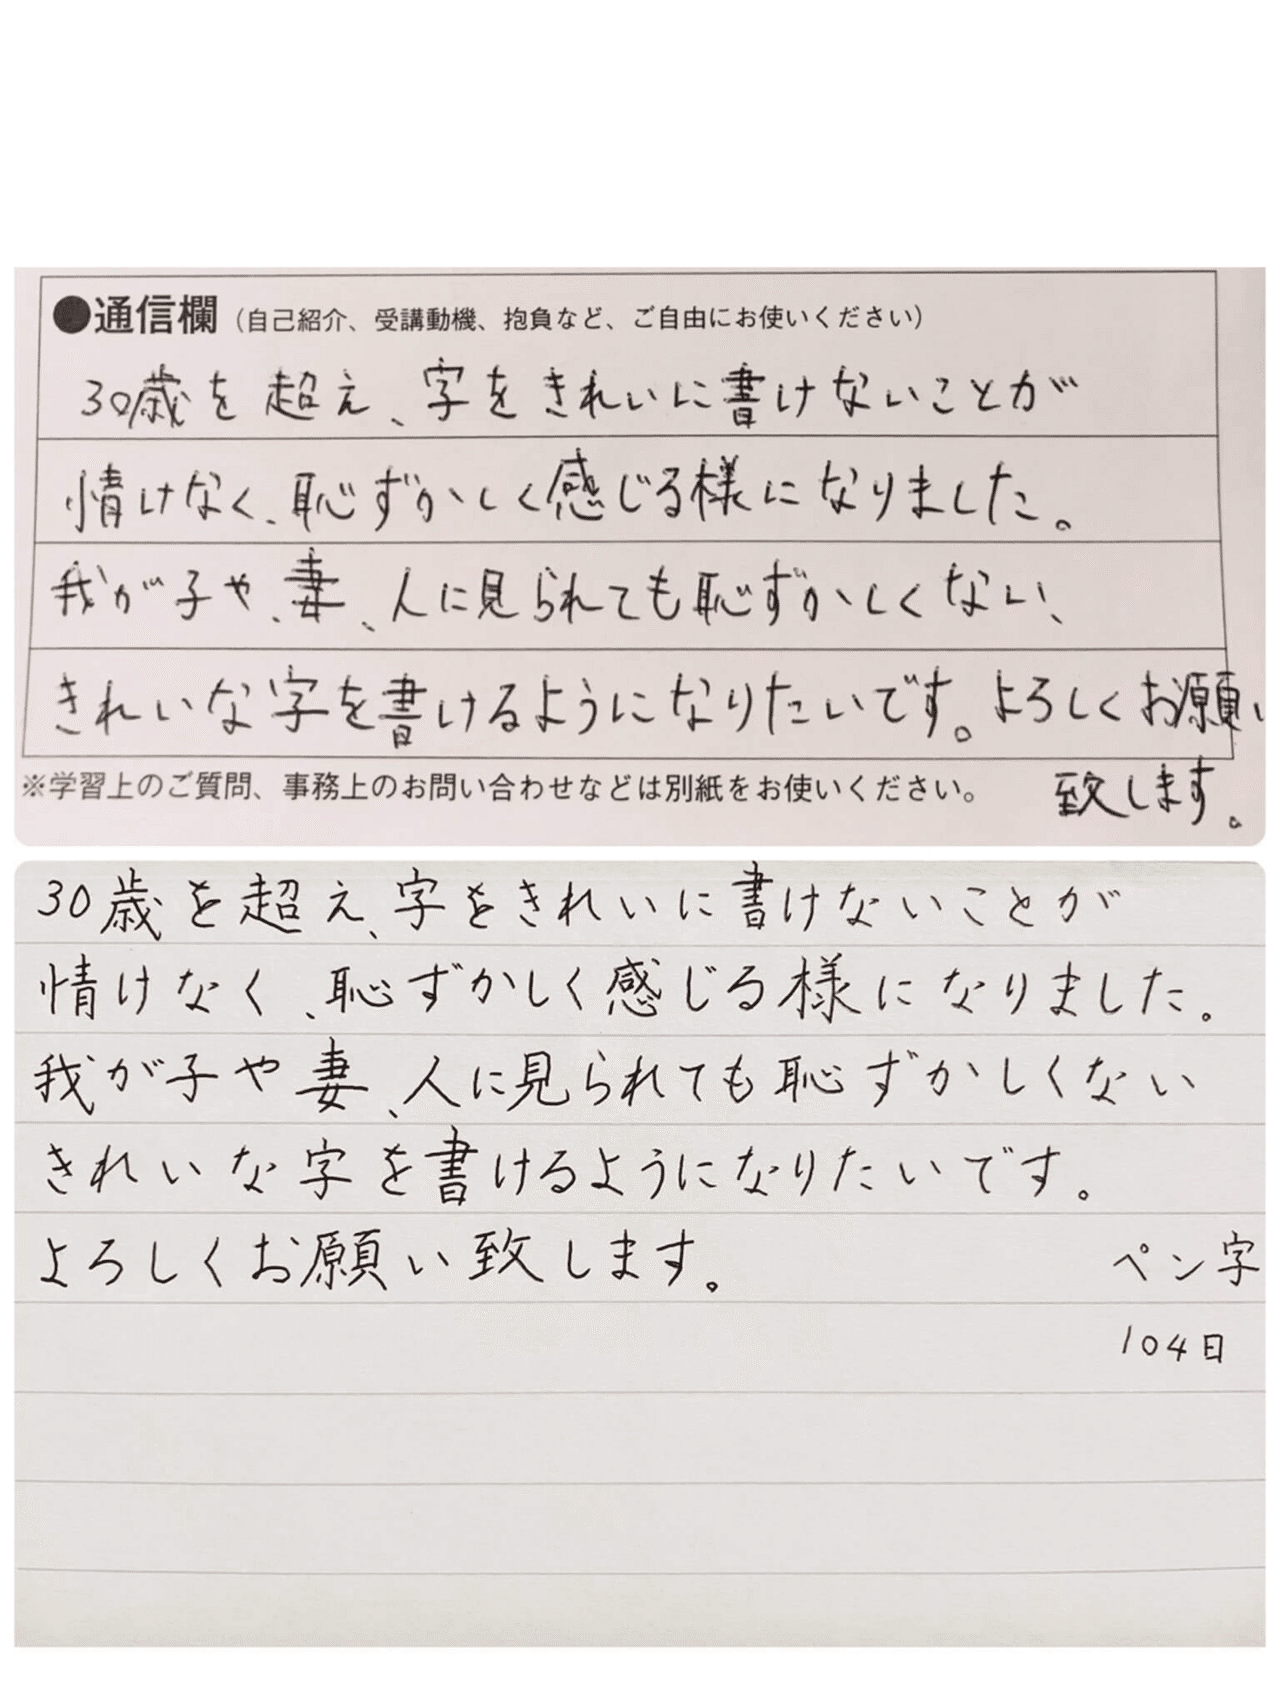 ●通信欄（自己紹介、受講動機、抱負など、ご自由にお使いください）
30歳を超え、字をきれいに書けないことが
情けなく、恥ずかしく感じる様になりました。
我が子や、妻、人に見られても恥ずかしくない、
きれいな字を書けるようになりたいです。よろしくお願い
致します。
※学習上のご質問、事務上のお問い合わせなどは別紙をお使いください。
30歳を超え、字をきれいに書けないことが
情けなく、恥ずかしく感じる様になりました。
我が子や妻、人に見られても恥ずかしくない
きれいな字を書けるようになりたいです。
よろしくお願い致します。
ペン字
104日